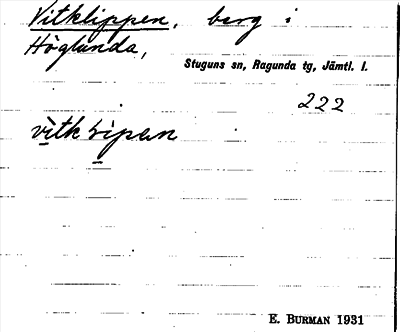 Vitklippen, berg i
Höglunda,
Stuguns sn, Ragunda tg, Jämtl. l.
222
E. BURMAN 1931